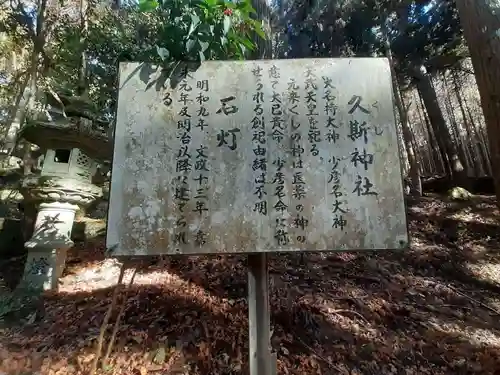 久斯神社
くし
大名持大神 少彦名大神
大武大皇を配る
元来くしの神は医薬の神の
意で大己貴命 少彦名命に称
せられる 創祀由緒は不明
石灯
明和九年 文政十三年 嘉
永元年及明治以降に建てられ
る